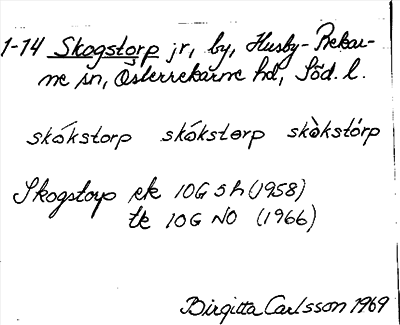 1-14 Skogstorp jr, by, Husby-Rekar-
ne sn, Österrekarne hd, Söd. l.
skókstorp skókstørp skòkstórp
Skogstorp ek 10G 5h (1958)
tk 10G NO (1966)
Birgitta Carlsson 1969